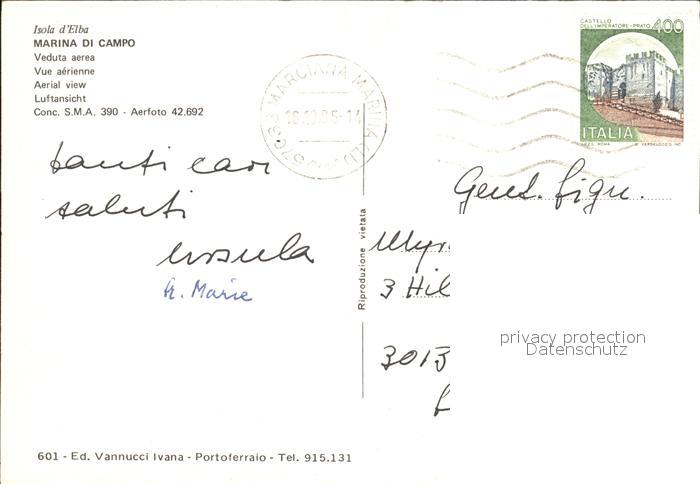 Isola d'Elba
MARINA DI CAMPO
Veduta aerea
Vue aérienne
Aerial view
Luftansicht
Conc. S.M.A. 390 - Aerfoto 42.692
57033 MARCIANA MARINA (LI)
16.10.86-14
CASTELLO
DELL'IMPERATORE - PRATO 400
ITALIA
I.P.Z.S. ROMA
tanti cari
saluti
Ursula
M. Marie
Riproduzione vietata
Gent. Sign.
Myr
3 Hil
3013
privacy protection
Datenschutz
601 - Ed. Vannucci Ivana - Portoferraio - Tel. 915.131